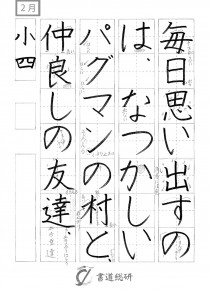 2月
毎日思い出すの
は、なつかしい
パグマンの村と、
仲良しの友達
小四
書道総研